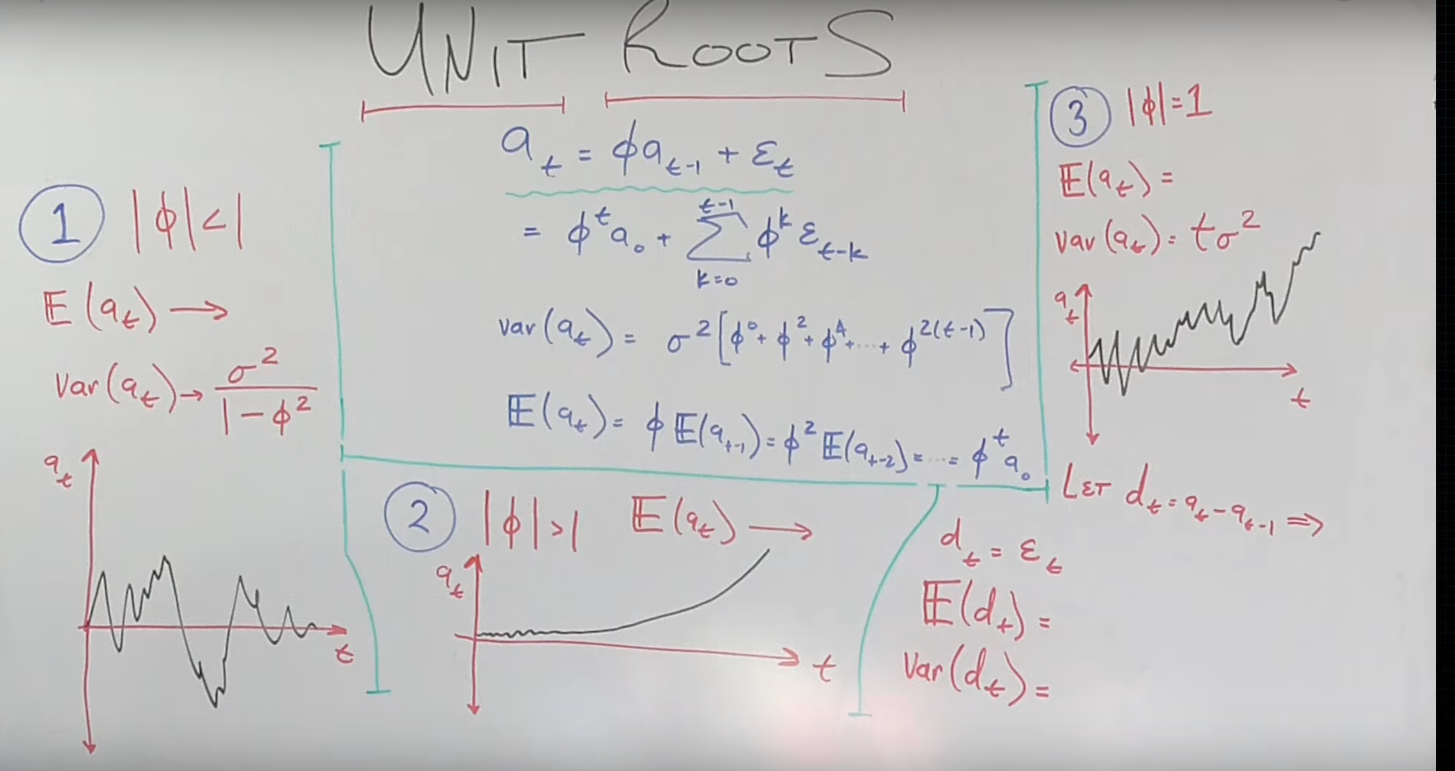 UNIT ROOTS
a_t = ϕa_{t-1} + ε_t
= ϕ^t a_0 + ∑_{k=0}^{t-1} ϕ^k ε_{t-k}
var(a_t) = σ^2[ϕ^0 + ϕ^2 + ϕ^4 + ... + ϕ^{2(t-1)}]
𝔼(a_t) = ϕ𝔼(a_{t-1}) = ϕ^2 𝔼(a_{t-2}) = ... = ϕ^t a_0
1 |ϕ|<1
𝔼(a_t) →
Var(a_t) → σ^2/(1-ϕ^2)
a_t
t
2 |ϕ|>1 𝔼(a_t) →
a_t
t
3 |ϕ|=1
𝔼(a_t) =
var(a_t) = tσ^2
a_t
t
LET d_t = a_t - a_{t-1} ⇒
d_t = ε_t
𝔼(d_t) =
Var(d_t) =